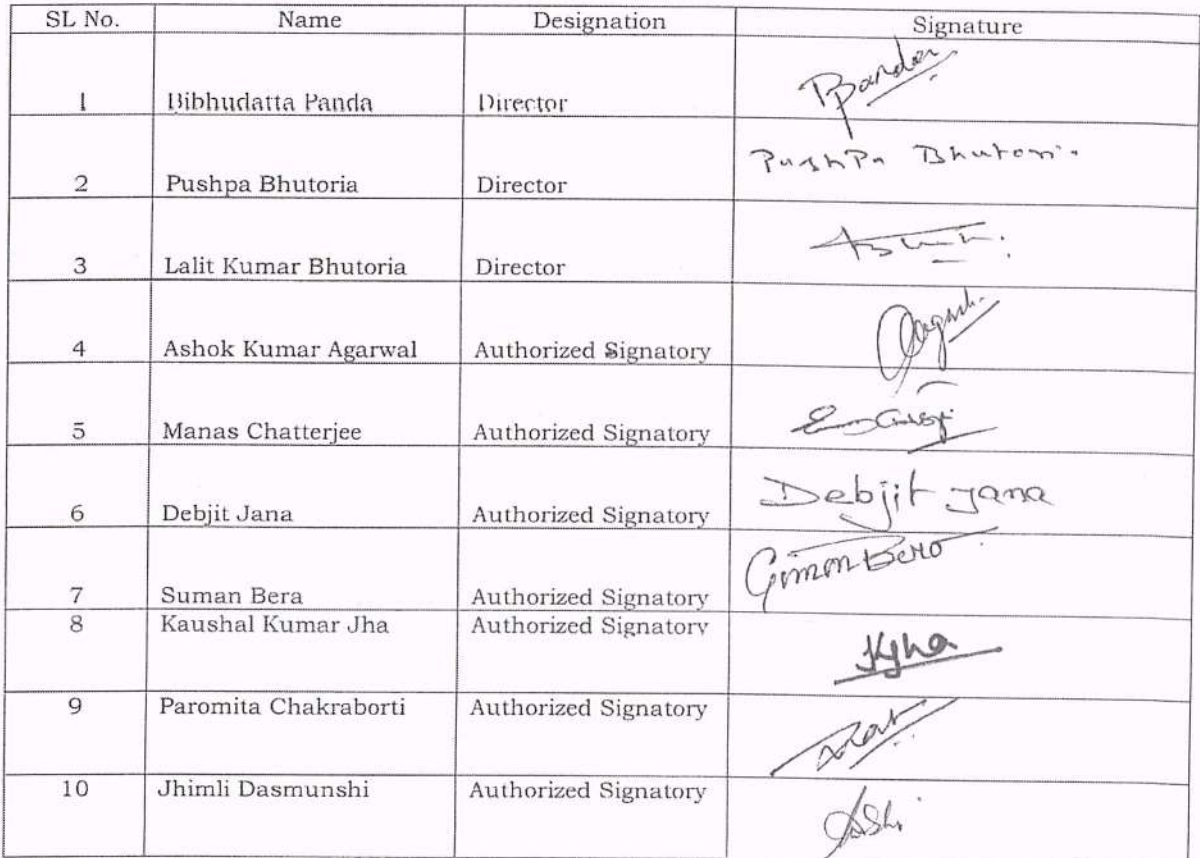 SL No. Name Designation Signature
1 Bibhudatta Panda Director
PushPa Bhutoria
2 Pushpa Bhutoria Director
3 Lalit Kumar Bhutoria Director
4 Ashok Kumar Agarwal Authorized Signatory
5 Manas Chatterjee Authorized Signatory
Debjit Jana
6 Debjit Jana Authorized Signatory
7 Suman Bera Authorized Signatory
8 Kaushal Kumar Jha Authorized Signatory
KJha
9 Paromita Chakraborti Authorized Signatory
10 Jhimli Dasmunshi Authorized Signatory